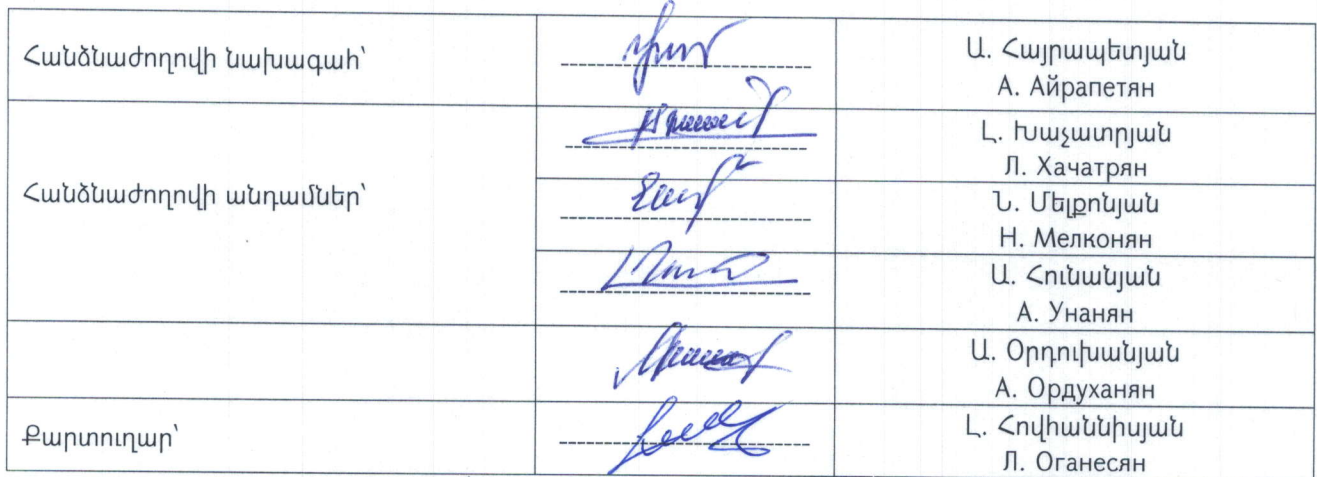 Հանձնաժողովի նախագահ՝
Ա. Հայրապետյան
А. Айрапетян
Հանձնաժողովի անդամներ՝
Լ. Խաչատրյան
Л. Хачатрян
Ն. Մելքոնյան
Н. Мелконян
Ա. Հունանյան
А. Унанян
Ա. Օրդուխանյան
А. Ордуханян
Քարտուղար՝
Լ. Հովհաննիսյան
Л. Оганесян